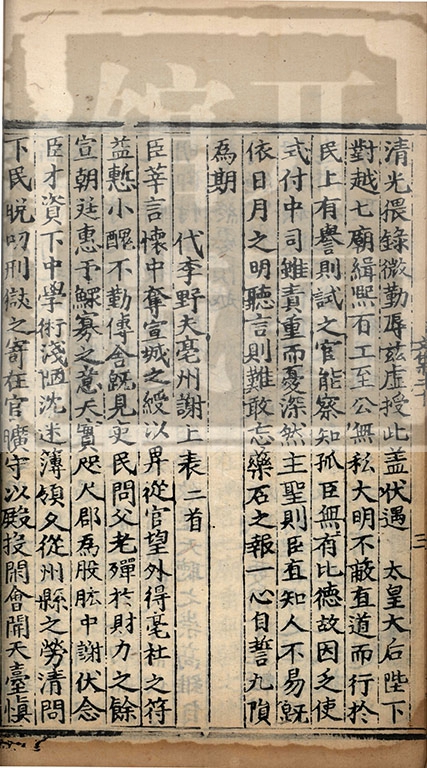 清光猥録微勤辱茲虛授此盖伏遇　太皇太后陛下
對越七廟緝熈百工至公無私大明不蔽直道而行於
民上有譽則試之官能察知孤臣無有比德故因乏使
式付中司雖責重而憂深然主聖則臣直知人不易旣
依日月之明聽言則難敢忘藥石之報一心自誓九隕
爲期
代李野夫亳州謝上表二首
臣莘言懷中奪宣城之綬以畀從官望外得亳社之符
益慙小醜不勤傳舍旣見吏民問父老殫於財力之餘
宣朝廷惠于鰥寡之意天實咫尺郡爲股肱中謝伏念
臣才資下中學術淺陋沈迷簿領久從州縣之勞清問
下民脫叨刑獄之寄在官曠守以殿投閑會開天臺慎
三